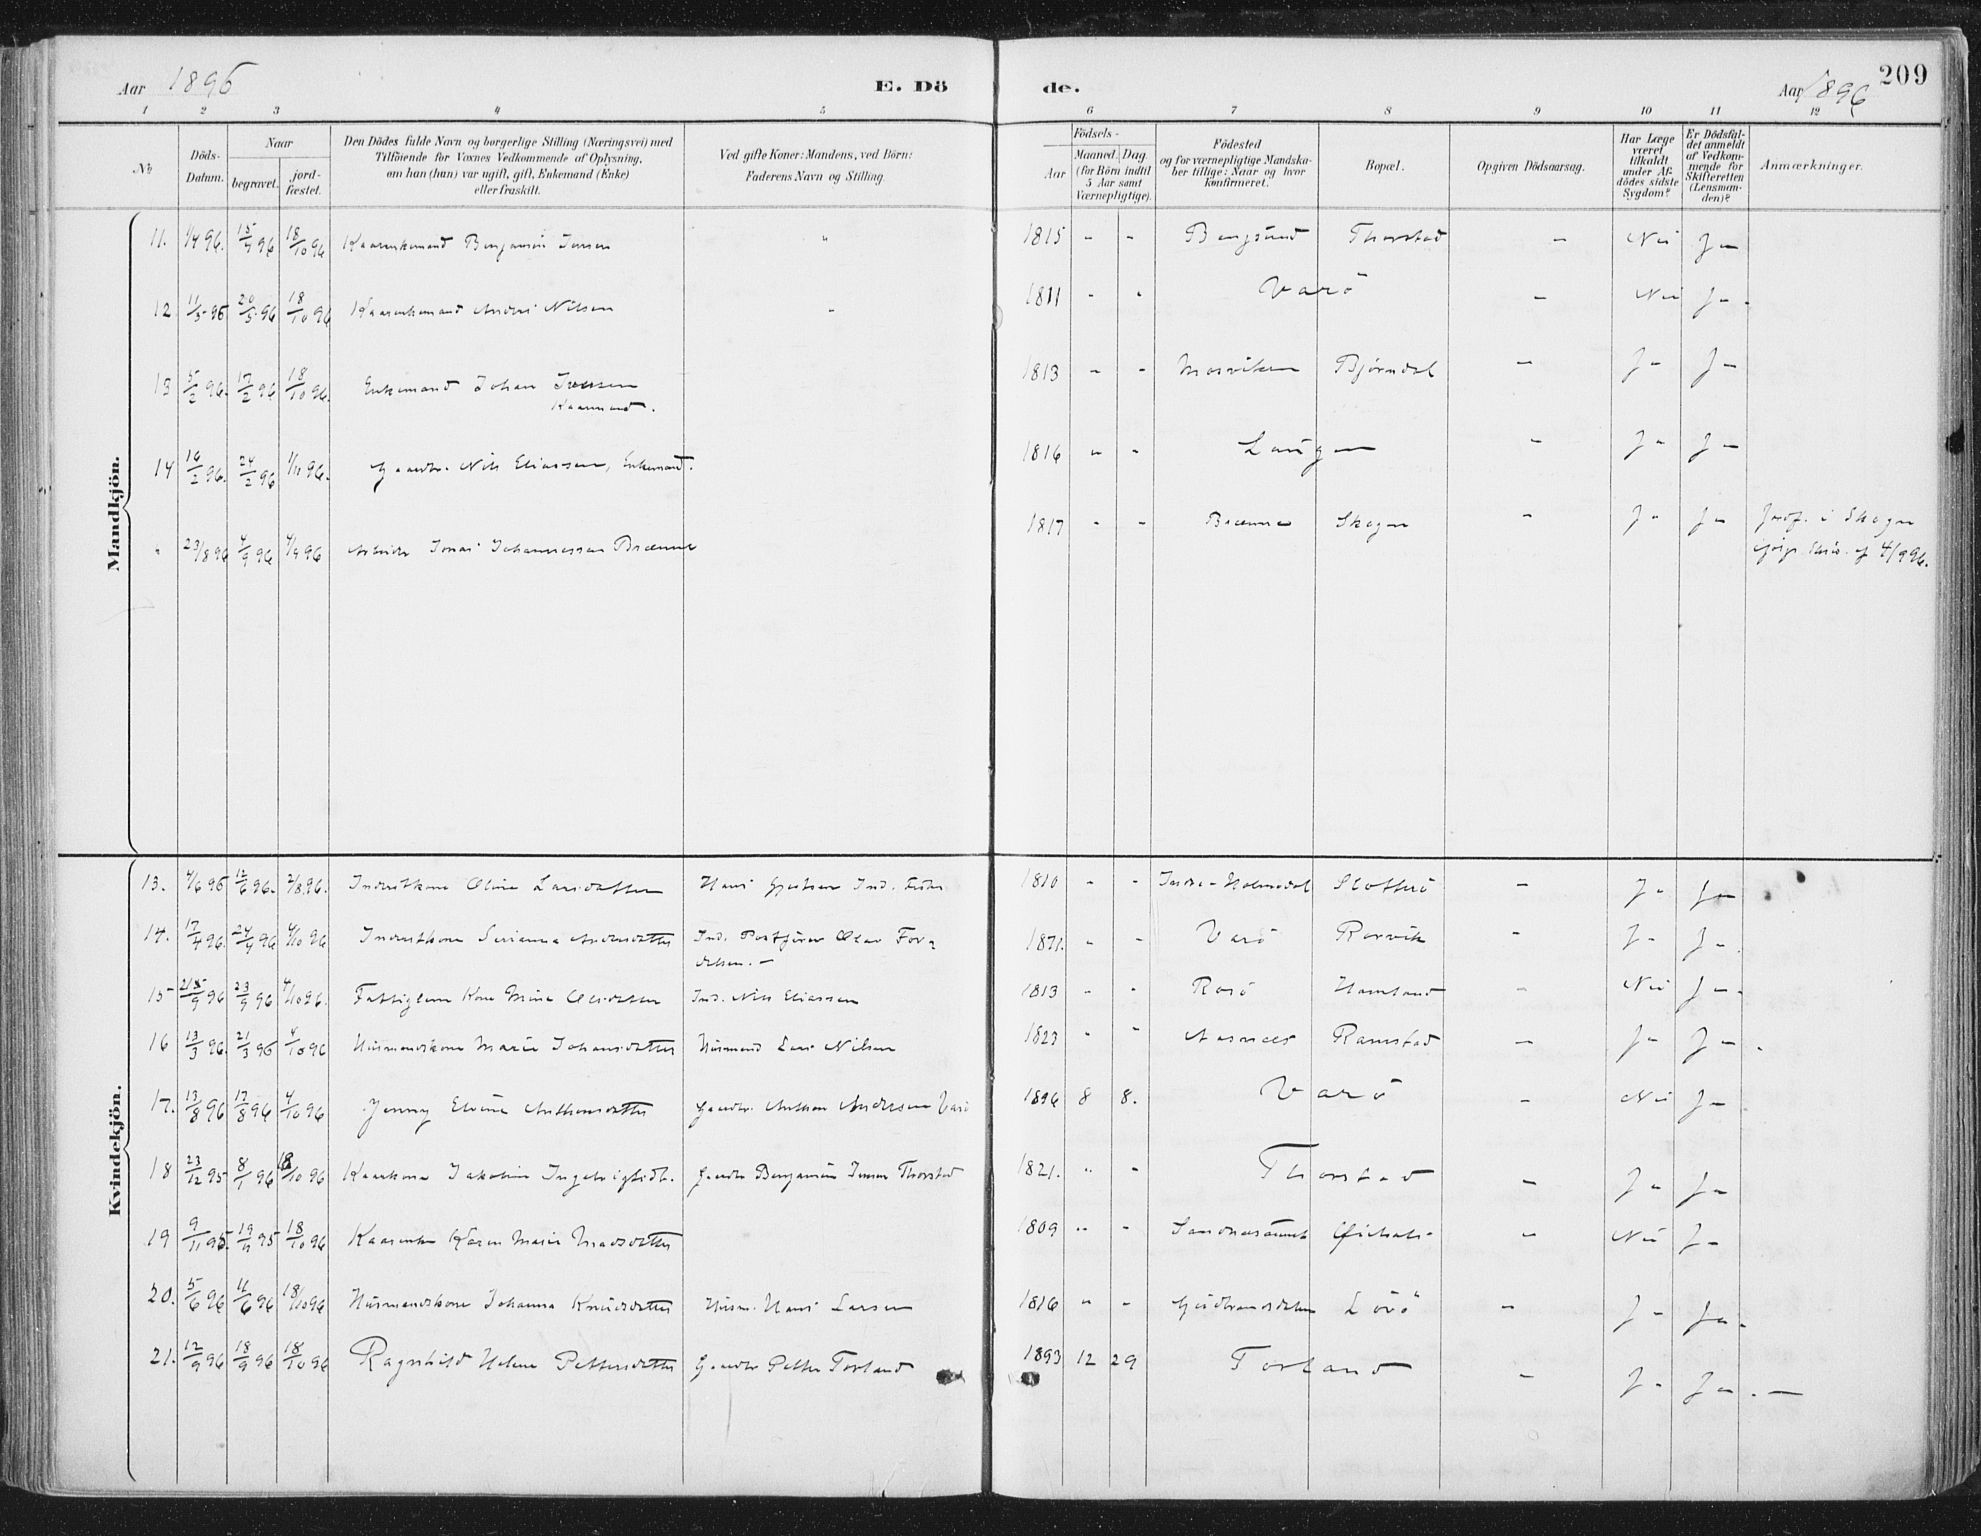 Aar 1896 E. Döde. Aar 1896 209
1 2 3 4 5 6 7 8 9 10 11 12
No
Döds-Datum.
Naar
begravet.
jord-fæstet.
Den Dödes fulde Navn og borgerlige Stilling (Næringsvei) med
Tilföiende for Voxnes Vedkommende af Oplysning,
om han (hun) var ugift, gift, Enkemand (Enke)
eller fraskilt.
Ved gifte Koner: Mandens, ved Börn:
Faderens Navn og Stilling.
Födsels-
Aar
Maaned. Dag.
(for Börn indtil
5 Aar samt
Værnepligtige).
Födested
og for værnepligtige Mandska-
ber tillige: Naar og hvor
konfirmeret.
Bopæl.
Opgiven Dödsaarsag.
Har Læge
været
tilkaldt
under Af-
dödes sidste
Sygdom?
Er Dödsfal-
det anmeldt
af Vedkom-
mende for
Skifteretten
(Lensman-
den)?
Anmærkninger.
Mandkjön.
11. 1/4 96. 15/4 96 18/10 96 Kaarenkemand Benjamin Jensen " 1815 - - Bangsund Thorstad - Nei Ja
12 11/5 96 20/5 96 18/10 96 Kaarenkemand Anders Nilsen - 1811 - - Varö - Nei Ja
13 5/2 96. 17/2 96 18/10 96. Enkemand Johan Iversen 1813 - - Mosviken Bjørndal - Ja Ja
Kaarmand.
14 16/2 96. 24/2 96 1/11 96. Gaardbr. Nils Eliassen, Enkemand. 1816 - - Laugen - Ja Ja
" 23/8 96 4/9 96 4/9 96 Arbeider Jonas Johannessen Brænne 1817 - - Brænne Skogn - Ja Ja Jordf. i Skogn
ifølge Skriv. af 4/9 96.
Kvindekjön.
13. 4/6 96 12/6 96. 2/8 96. Inderstkone Oline Larsdatter Hans 1810 - - Indre-Holmedal Slotterö - Ja Ja
14. 17/4 96. 24/4 96 4/10 96 Inderstkone Serianna Andersdatter Ind. Postfører Olav For-
1871. - - Varö Rørvik - Ja Ja
15 96 23/9 96 4/10 96. Fattiglem Kone Mina Olsdatter Ind. Nils Eliassen 1813 - - Rosö Hamland - Nei Ja
16 13/3 96. 21/3 96 4/10 96 Husmandskone Marie Johansdatter Husmand Lars Nilsen 1823 - - Aasnæs Ramstad - Ja Ja
17. 13/8 96 17/8 96 4/10 96 Jenny Elvine Anthonsdatter Gaardbr. Anthon Andersen Varö 1896 8 8. Varö - Nei Ja
18 23/12 95 8/1 96 18/10 96 Kaarkone Jakobine Ingebrigtsdt. Gaardbr Benjamin Jensen Thorstad 1821. - - Thorstad - Ja Ja
19 9/11 95. 95 18/10 96 Kaarenke Karen Marie Madsdatter 1809 - - - Nei Ja
20. 5/6 96 11/6 96 18/10 96 Husmandskone Johanna Knudsdatter Husm. Hans Larsen 1816 - - Gudbrandsdalen Lövö - Ja Ja
21. 12/9 96 18/9 96 18/10 96 Ragnhild Helene Pettersdatter Gaardbr Petter Forland 1893 12 29 Forland - Ja Ja